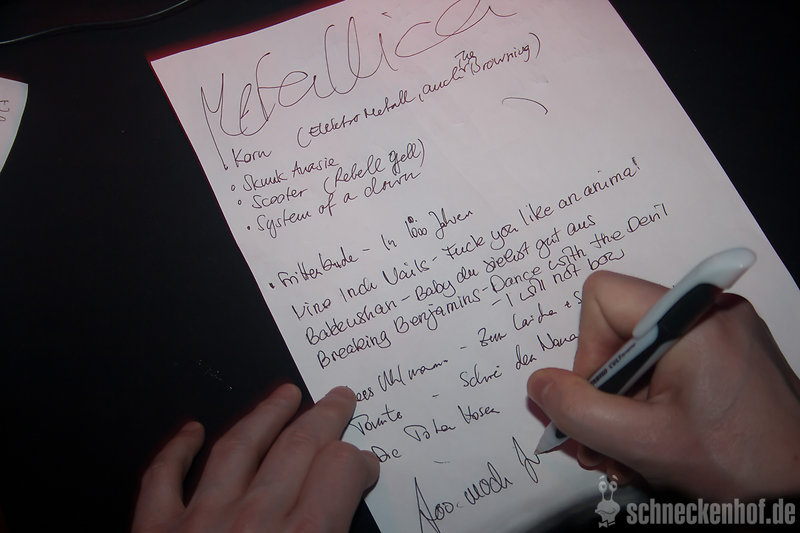 Metallica
(Elektro Metall, auch The Browning)
• Korn
• Skunk Anasie
• Scooter (Rebell Yell)
• System of a down
• Frittenbude - In 1000 Jahren
Nine Inch Nails - Fuck you like an animal
Babeushan - Baby du siehst gut aus
Breaking Benjamins - Dance with the Devil
- I will not bow
Uhlmann - Zum Laichen &
Tomte - Schrei den Nam
Die Toten Hosen
schneckenhof.de